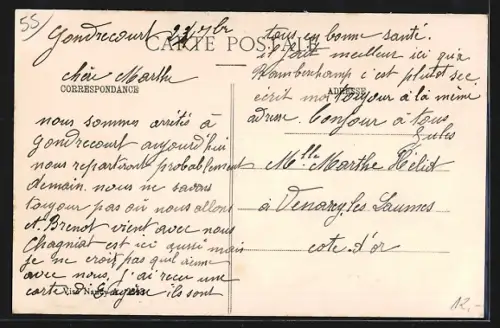 55
Gondrecourt 22/7bre
CARTE POSTALE
chère Marthe
CORRESPONDANCE
nous sommes arrêtés à
gondrecourt aujourd'hui
nous repartirons probablement
demain. nous ne savons
toujour pas où nous allons
A. Brenot vient avec nous
Chagniat est ici aussi mais
je ne crois pas qu'il vienne
avec nous. j'ai reçu une
carte d'Eugène ils sont
tous en bonne santé.
il fait meilleur ici qu'à
c'est plutôt sec.
ADRESSE
écrit moi toujour à la même
adresse. bonjour à tous
Jules
Melle Marthe Héliot
à Venarey les Laumes
cote d'or
12,-